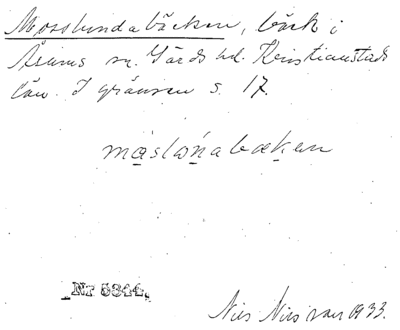 Mosslundabäcken, bäck i
Åhus sn. Gärds hd. Kristianstads
län. I gränsen s. 17.
Nr 5844.
Nils Nilsson 1933.